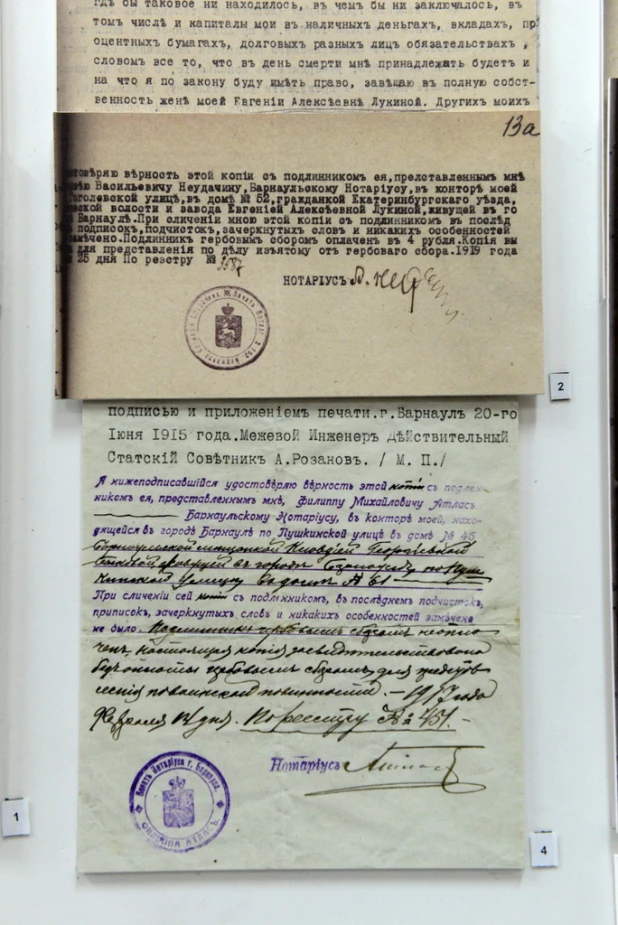 гдѣ бы таковое ни находилось, въ чемъ бы ни заключалось, въ
томъ числѣ и капиталы мои въ наличныхъ деньгахъ, вкладахъ, пр
оцентныхъ бумагахъ, долговыхъ разныхъ лицъ обязательствахъ,
словомъ все то, что въ день смерти мнѣ принадлежать будетъ и
на что я по закону буду имѣть право, завѣщаю въ полную собст-
венность женѣ моей Евгеніи Алексѣевнѣ Лукиной. Другихъ моихъ
13а
товѣряю вѣрность этой копіи съ подлинникомъ ея, преставленнымъ мнѣ
ѣю Васильевичу Неудачину, Барнаульскому Нотаріусу, въ конторѣ моей
гоголевской улицѣ, въ домѣ № 52, гражданкой Екатеринбургскаго уѣзда,
ской волости и завода Евгеніей Алексѣевной Лукиной, живущей въ го
Барнаулѣ. При сличеніи мною этой копіи съ подлинникомъ въ послѣд
подписокъ, подчистокъ, зачеркнутыхъ словъ и никакихъ особенностей
мѣчено. Подлинникъ гербовымъ сборомъ оплаченъ въ 4 рубля. Копія вы
для представленія по дѣлу изъятому отъ гербоваго сбора. 1919 года
25 дня По реестру №
НОТАРІУСЪ
2
подписью и приложеніемъ печати. г. Барнаулъ 20-го
Іюня 1915 года. Межевой Инженеръ Дѣйствительный
Статскій Совѣтникъ А. Розановъ. / М. П./
Я нижеподписавшійся удостовѣряю вѣрность этой копіи съ подлин-
никомъ ея, представленнымъ мнѣ, Филиппу Михайловичу Атлас
Барнаульскому Нотаріусу, въ конторѣ моей, нахо-
дящейся въ городѣ Барнаулѣ по Пушкинской улицѣ въ домѣ № 46
Барнаульской мѣщанкой Клавдіей Георгіевной
живущей въ городѣ Барнаулѣ по Пуш
кинской улицѣ въ домѣ № 61
При сличеніи сей копіи съ подлинникомъ, въ послѣднемъ подчистокъ,
приписокъ, зачеркнутыхъ словъ и никакихъ особенностей замѣчено
не было. Подлинникъ гербовымъ сборомъ неопла
ченъ, настоящая копія засвидѣтельствована
безъ оплаты гербовымъ сборомъ, для
повинности. - 1917 года
Февраля 14 дня. По реестру № 451.-
Нотаріусъ
Печать Нотаріуса г. Барнаула.
ФИЛИППА АТЛАСЪ
1
4